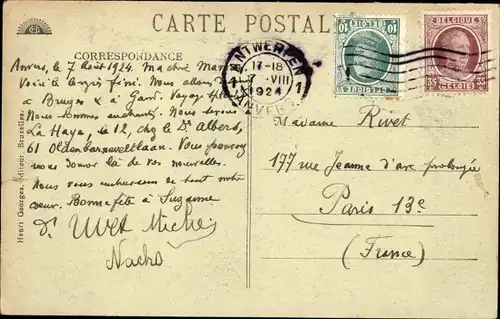 CARTE POSTALE
CORRESPONDANCE
Anvers, le 7 Août 1924. Ma chère Mam
Voici le congrès fini. Nous allons
à Bruges & à Gand. Voyage
Nous sommes enchantés. Nous serons
La Haye, le 12, chez le Dr Albers,
61 Oldenbarneveltlaan. Vous pouvez
nous donner là de vos nouvelles.
Nous vous embrassons de tout notre
cœur. Bonne fête à Suzanne
Nacho
Henri Georges, éditeur, Bruxelles.
ANTWERPEN
1 17-18 1
7 VIII
1924
ANVERS
BELGIQUE
10 BELGIË 10
BELGIQUE
Madame Rivet
177 rue Jeanne d'arc prolongée
Paris 13e
(France)